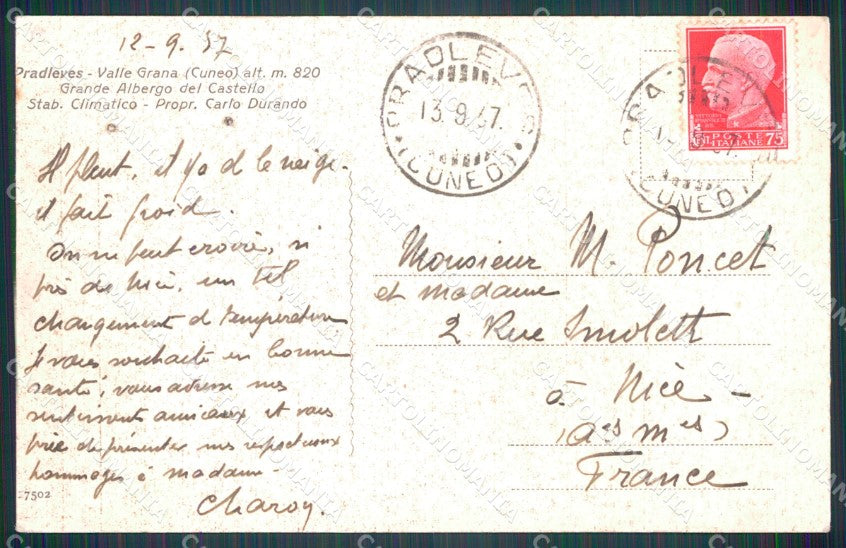 12-9.37
Pradleves - Valle Grana (Cuneo) alt. m. 820
Grande Albergo del Castello
Stab. Climatico - Propr. Carlo Durando
Il pleut, il y a de la neige.
il fait froid.
On ne peut croire, si
près de Nice, un tel
changement de température
Je vous souhaite en bonne
santé, vous adresse mes
sentiments amicaux et vous
prie de présenter mes respectueux
hommages à madame
Charoy.
7502
PRADLEVES
13.9.37.
(CUNEO)
PRADLEV
(CUNEO)
POSTE
ITALIANE
75
Monsieur M. Poncet
et madame
2 Rue Smolett
à Nice -
(Aes Mes)
France
CARTOLINOMANIA